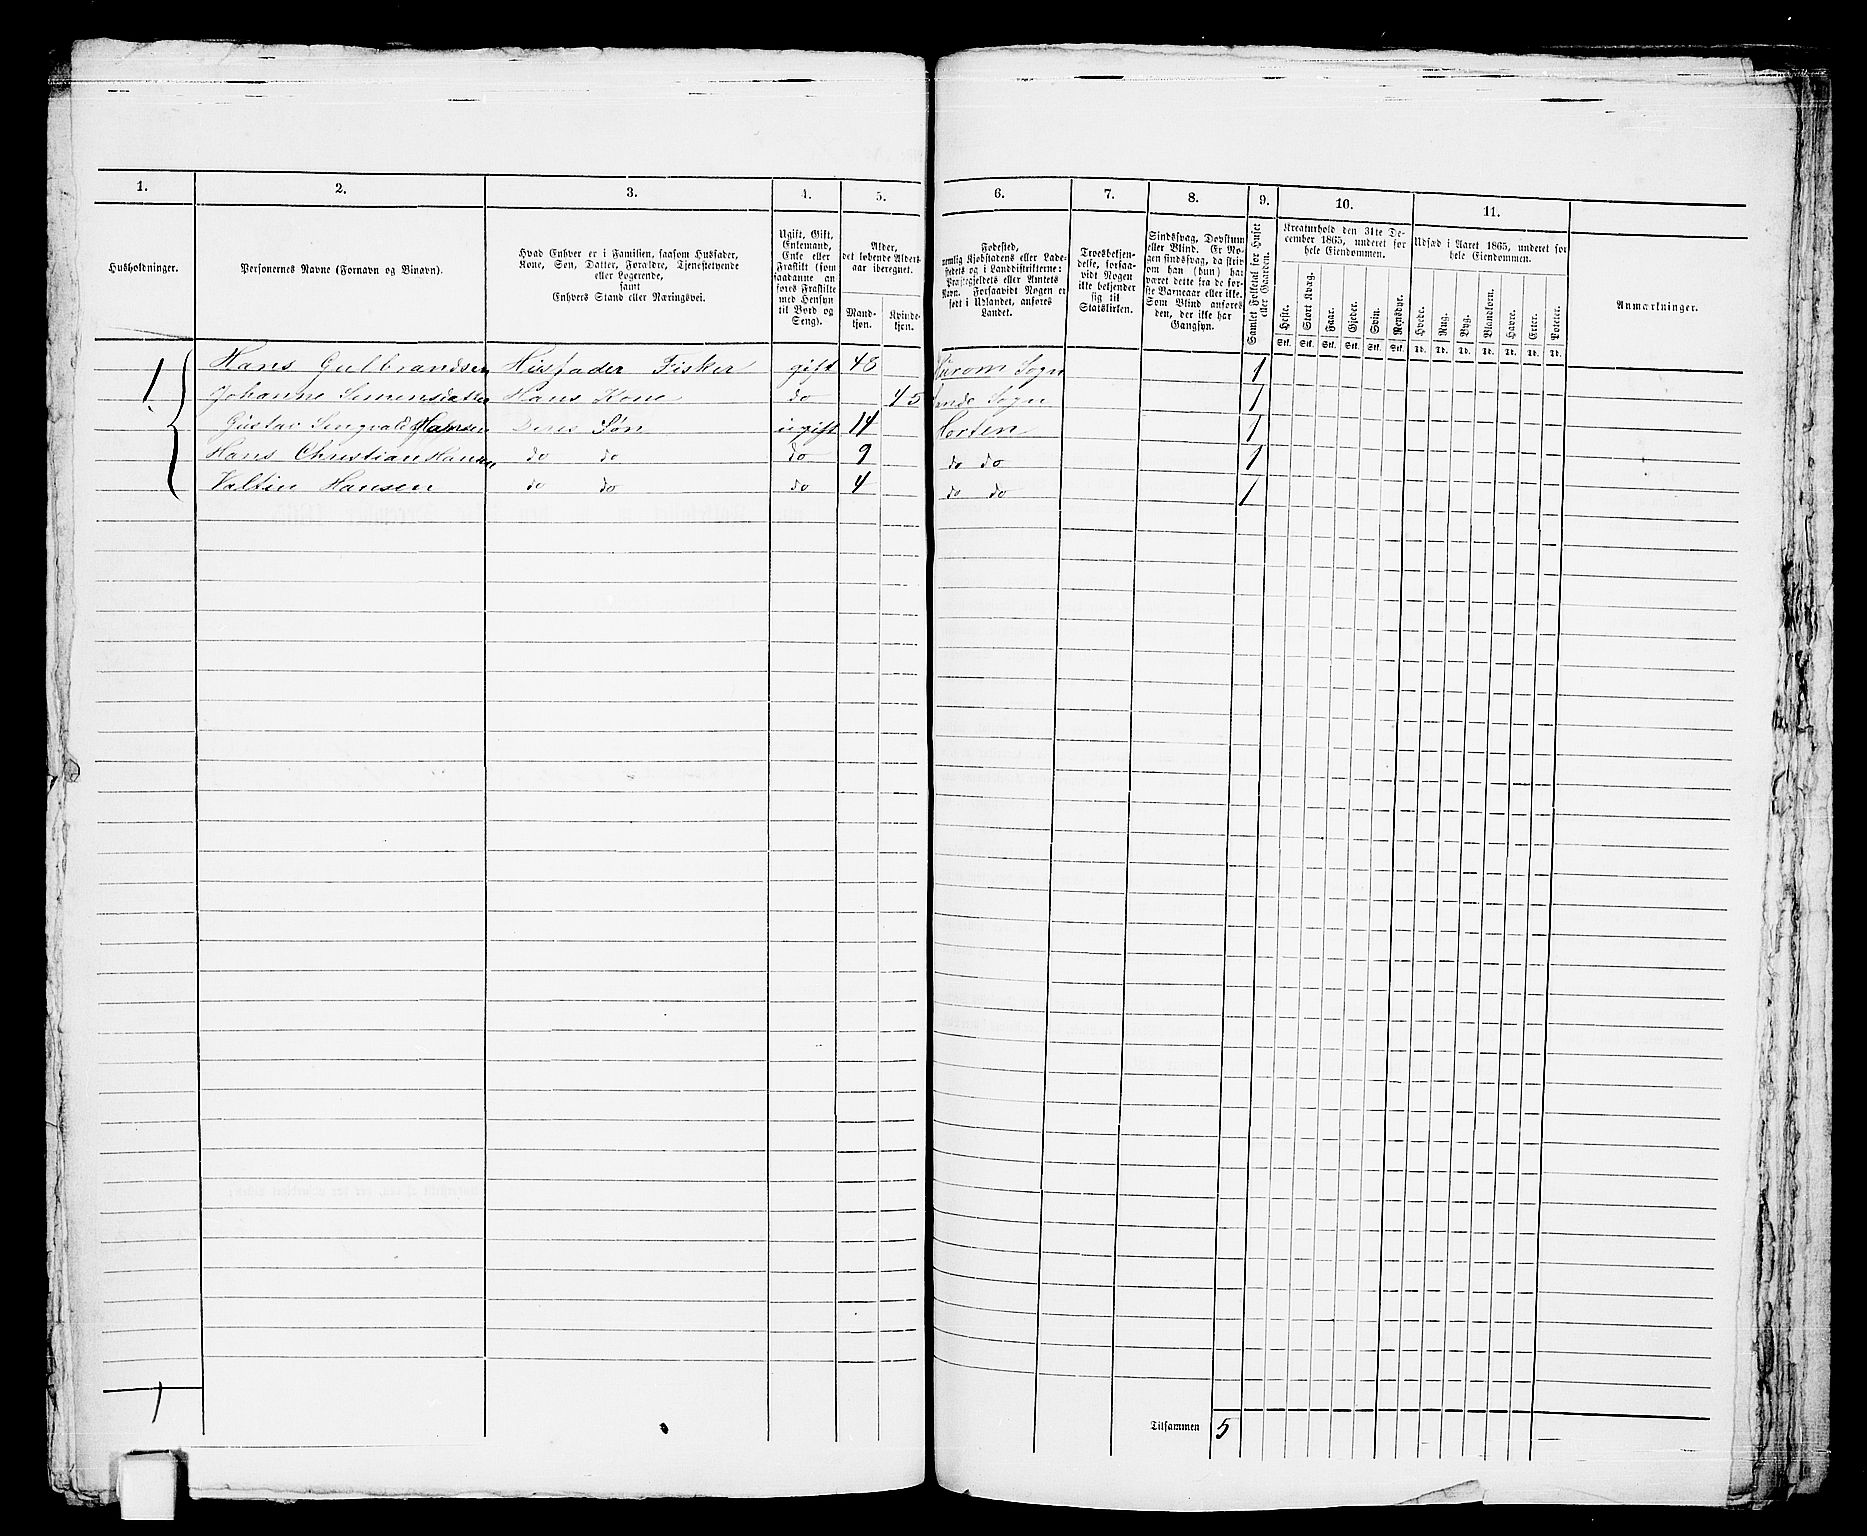 1. 2. 3. 4. 5. 6. 7. 8. 9. 10. 11.
Husholdninger.
Personernes Navne (Fornavn og Binavn).
Hvad Enhver er i Familien, saasom Husfader,
Kone, Søn, Datter, Forældre, Tjenestetyende
eller Logerende,
samt
Enhvers Stand eller Næringsvei.
Ugift, Gift,
Enkemand,
Enke eller
Fraskilt (som
saadanne an-
føres Fraskilte
med Hensyn
til Bord og
Seng).
Alder,
det løbende Alders-
aar iberegnet.
Mand-
kjøn.
Kvinde-
kjøn.
Fødested,
nemlig Kjøbstadens eller Lade-
stedets og i Landdistrikterne:
Præstegjeldets eller Amtets
Navn. Forsaavidt Nogen er
født i Udlandet, anføres
Landet.
Troesbekjen-
delse, forsaa-
vidt Nogen
ikke bekjender
sig til
Statskirken.
Sindssvag, Døvstum
eller Blind. Er No-
gen sindssvag, da skriv
om han (hun) ha-
været dette fra de før-
ste Barneaar eller ikke.
Som Blind anføres
den, der ikke har
Gangsyn.
Samlet Folketal for Huset
eller Gaarden.
Kreaturhold den 31te De-
cember 1865, underet for
hele Eiendommen.
Heste.
Stort Kvæg.
Faar.
Gjeder.
Svin.
Rensdyr.
Stk. Stk. Stk. Stk. Stk. Stk.
Udsæd i Aaret 1865, underet for
hele Eiendommen.
Hvede.
Rug.
Byg.
Blandkorn.
Havre.
Erter.
Poteter.
Td. Td. Td. Td. Td. Td. Td.
Anmærkninger.
1 Hans Gulbrandsen Husfader Fisker gift 48 Sogn 1
Johanne Simensdatter Hans Kone do 45 Sande Sogn 1
Gustav Hansen Deres Søn ugift 14 Horten 1
Hans Christian Hansen do do do 9 do do 1
Valtin Hansen do do do 4 do do 1
1
Tilsammen 5